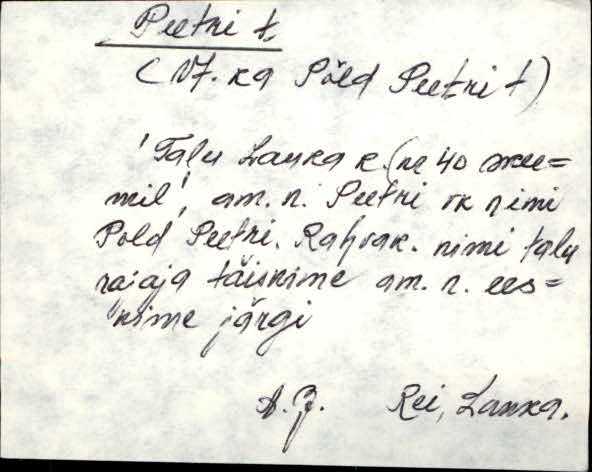 Peetri t.
(Vt. ka Põld Peetri t)
'Talu Lauka k.
mil', am. n. Peetri rk nimi
Põld Peetri. Rahvak. nimi talu
rajaja täisnime am. n. ees=
nime järgi
A. J. Rei, Lauka.